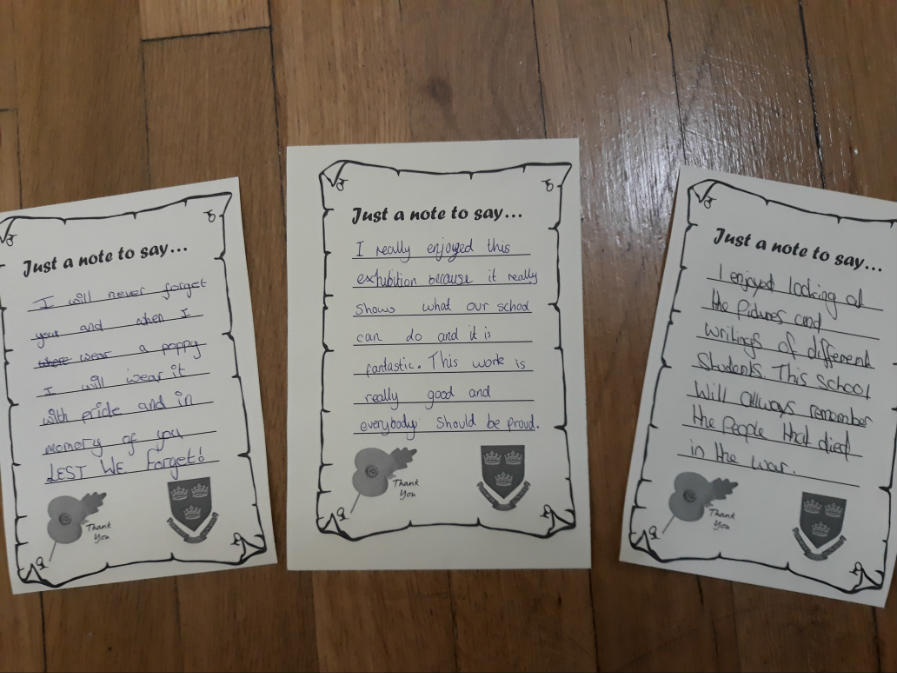 Just a note to say...
I will never forget
your and when I
where wear a poppy
I will wear it
with pride and in
memory of you
LEST WE Forget!
Thank
You
Just a note to say...
I really enjoyed this
exhibition because it really
shows what our school
can do and it is
fantastic. This work is
really good and
everybody should be proud.
Thank
You
Just a note to say...
I enjoyed looking at
the pictures and
writings of different
students. This school
Will allways remember
the people that died
in the war.
Thank
You